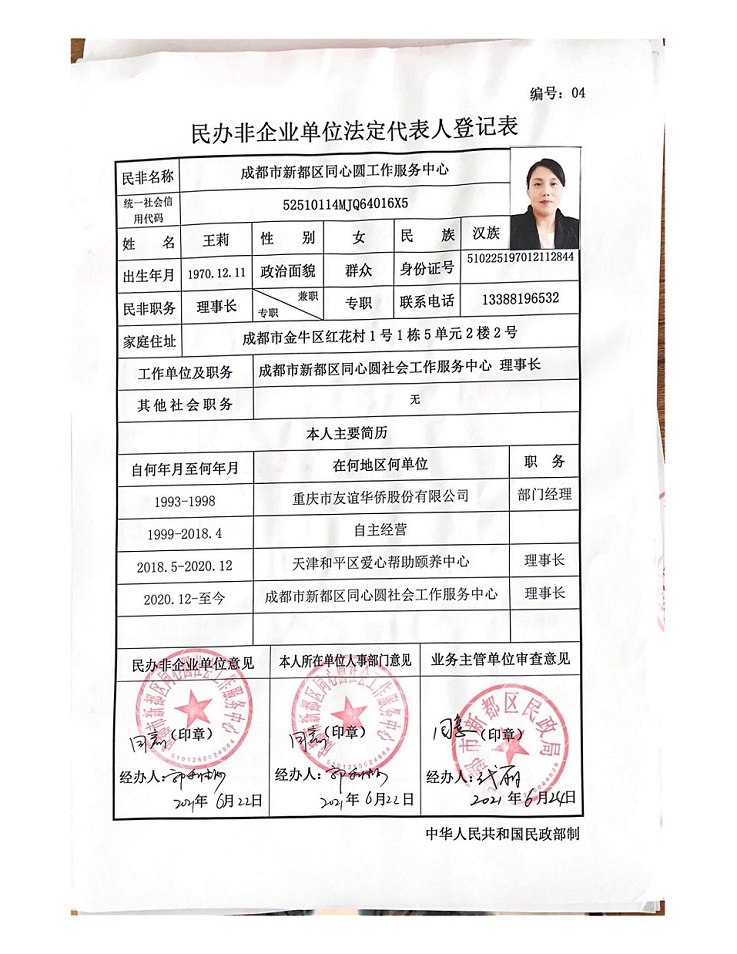 编号：04
民办非企业单位法定代表人登记表
民非名称 成都市新都区同心圆工作服务中心
统一社会信用代码 52510114MJQ64016X5
姓 名 王莉 性 别 女 民 族 汉族
出生年月 1970.12.11 政治面貌 群众 身份证号 510225197012112844
民非职务 理事长 兼职 专职 专职 联系电话 13388196532
家庭住址 成都市金牛区红花村1号1栋5单元2楼2号
工作单位及职务 成都市新都区同心圆社会工作服务中心 理事长
其他社会职务 无
本人主要简历
自何年月至何年月 在何地区何单位 职 务
1993-1998 重庆市友谊华侨股份有限公司 部门经理
1999-2018.4 自主经营
2018.5-2020.12 天津和平区爱心帮助颐养中心 理事长
2020.12-至今 成都市新都区同心圆社会工作服务中心 理事长
民办非企业单位意见 本人所在单位人事部门意见 业务主管单位审查意见
同意（印章） 同意（印章） 同意（印章）
经办人： 经办人： 经办人：
2021年 6月22日 2021年 6月22日 2021年 6月24日
中华人民共和国民政部制